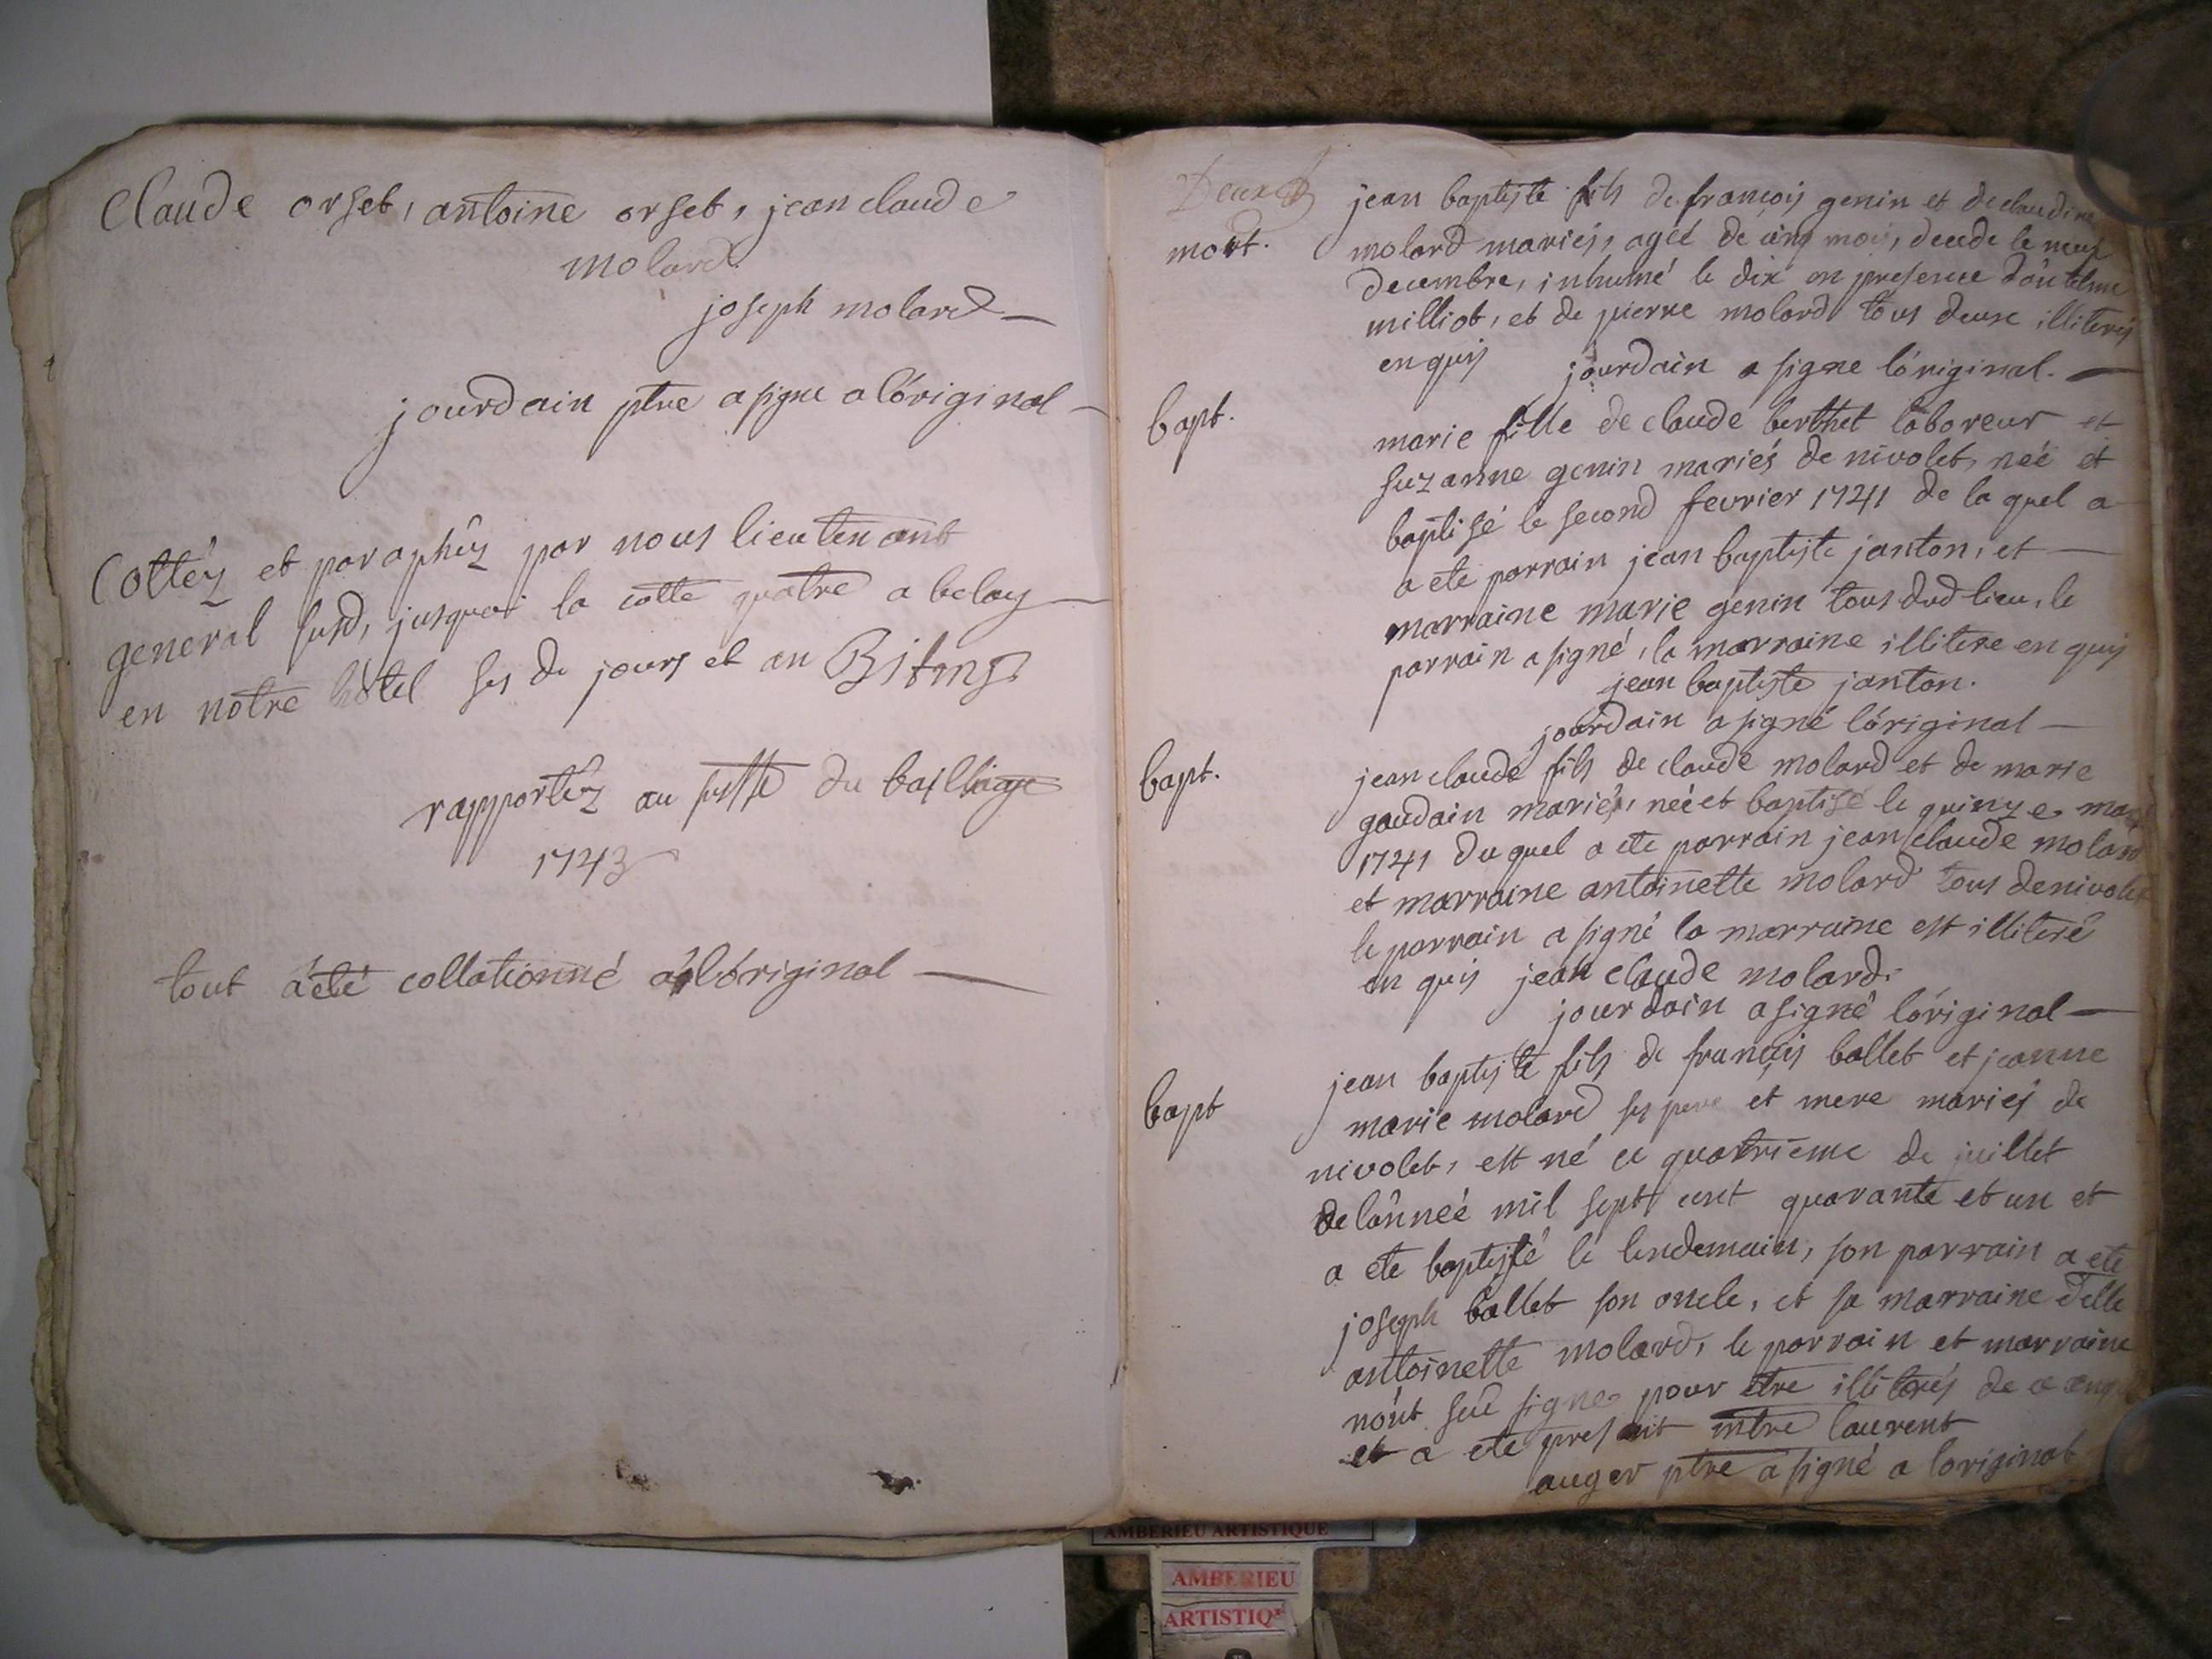 Claude orset, antoine orset, jean claude
molard.
joseph molard
jourdain ptre a signe a lóriginal
Cottéz et paraphéz par nous lieutenant
general susd, jusquoi la cotte quatre a belay
en notre hôtel ses de jours et an
rapportéz au du baillage
1743
tout áété collationné á lóriginal
mort.
jean baptiste fils de françois genin et de claudine
molard mariés, ageé de cinq mois, decede le neuf
decembre, inhumé le dix en presence
milliot, et de pierre molard tous deux illiterés
enquis jourdain a signe lóriginal.
bapt.
marie fille de claude berthet laboreur et
suzanne genin mariés de nivolet, neé et
baptisé le second fevrier 1741 de la quel a
a ete parrain jean baptiste janton, et
marraine marie genin tous dud lieu, le
parrain a signé, la marraine illitere enquis
jean baptiste janton.
jourdain a signé lóriginal
bapt.
jean claude fils de claude molard et de marie
gaudain mariés, neé et baptisé le quinze mars
1741 du quel a ete parrain jean claude molard
et marraine antoinette molard tous de nivolet
le parrain a signé la marraine est illiteré
en quis jean claude molard.
jourdain a signé lóriginal
bapt
jean baptiste fils de françis ballet et jeanne
marie molard ses pere et mere mariés de
nivolet, est né ce quatrieme de juillet
de lánneé mil sept cent quarante et un et
a ete baptisé le lendemain, son parrain a ete
joseph ballet son oncle, et sa marraine delle
antoinette molard, le parrain et marraine
nónt seu signer pour etre illiterés de ce
et a ete present mtre laurent
auger ptre a signé a loriginal
AMBERIEU ARTISTIQUE
AMBERIEU
ARTISTIQ